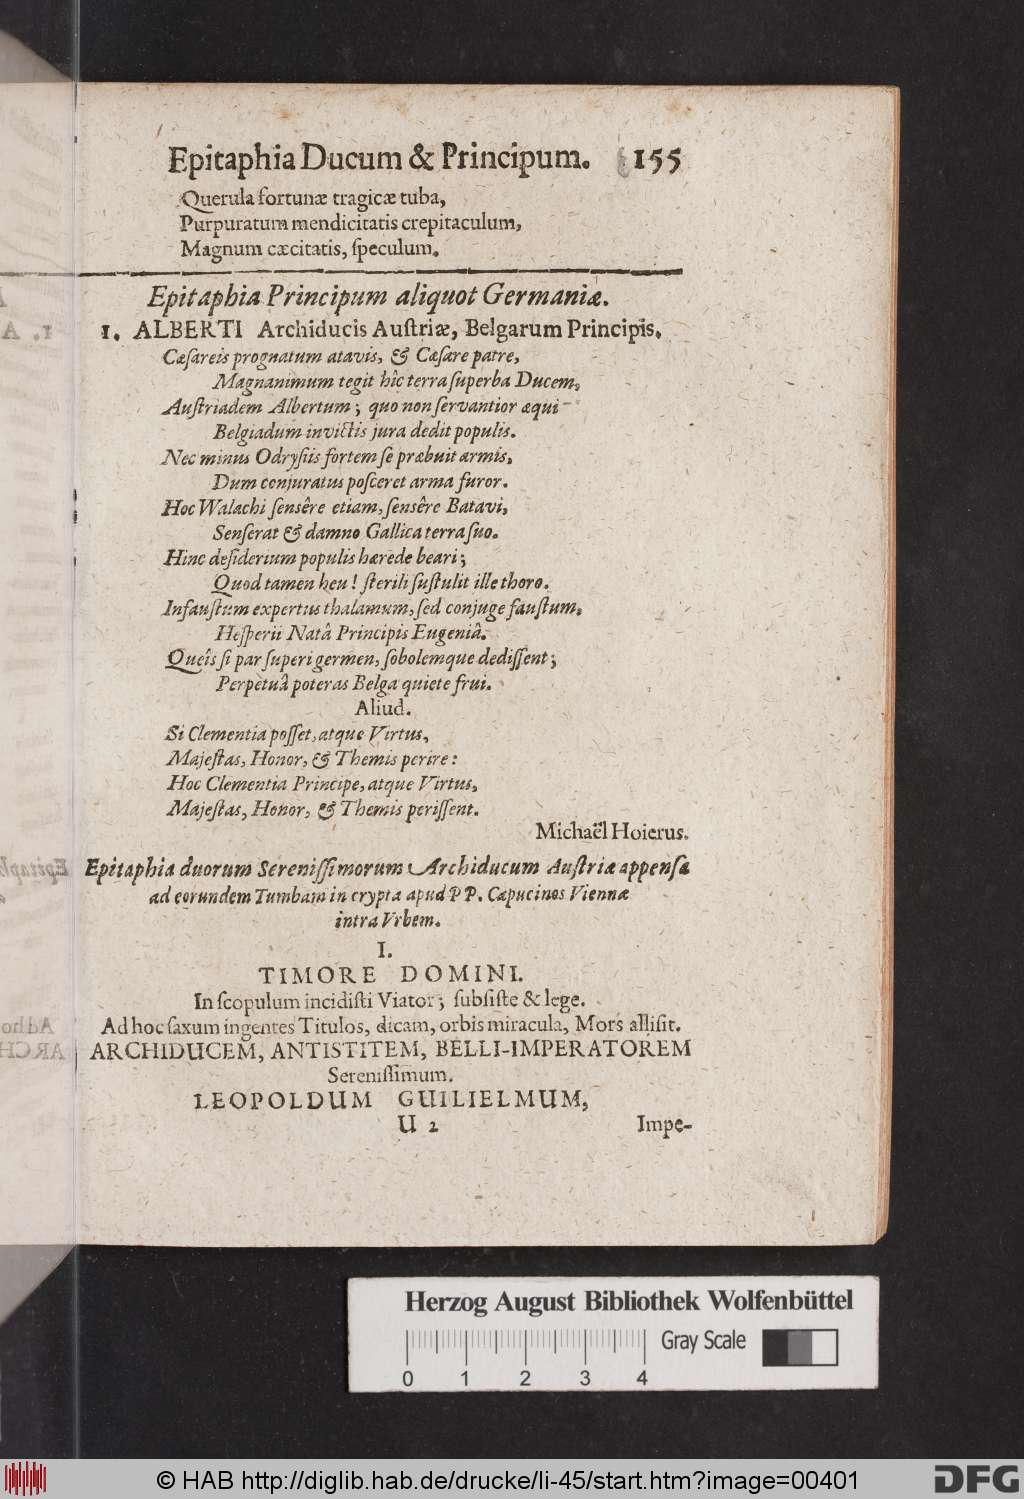 Epitaphia Ducum & Principum. 155
Querula fortunæ tragicæ tuba,
Purpuratum mendicitatis crepitaculum,
Magnum cæcitatis, ſpeculum.
Epitaphia Principum aliquot Germaniæ.
1. ALBERTI Archiducis Auſtriæ, Belgarum Principis.
Cæſareis prognatum atavis, & Cæſare patre,
Magnanimum tegit hîc terra ſuperba Ducem,
Auſtriadem Albertum; quo non ſervantior æqui
Belgiadum invictis jura dedit populis.
Nec minus Odryſiis fortem ſe præbuit armis,
Dum conjuratus poſceret arma furor.
Hoc Walachi ſensêre etiam, ſensêre Batavi,
Senſerat & damno Gallica terra ſuo.
Hinc deſiderium populis hærede beari;
Quod tamen heu! ſterili ſuſtulit ille thoro.
Infauſtum expertus thalamum, ſed conjuge fauſtum,
Heſperii Natâ Principis Eugeniâ.
Queîs ſi par ſuperi germen, ſobolemque dediſſent;
Perpetuâ poteras Belga quiete frui.
Aliud.
Si Clementia poſſet, atque Virtus,
Majeſtas, Honor, & Themis perire:
Hoc Clementia Principe, atque Virtus,
Majeſtas, Honor, & Themis periſſent.
Michaël Hoierus.
Epitaphia duorum Sereniſſimorum Archiducum Auſtriæ appenſa
ad eorundem Tumbam in crypta apud P P. Capucinos Viennæ
intra Urbem.
I.
TIMORE DOMINI.
In ſcopulum incidiſti Viator; ſubſiſte & lege.
Ad hoc ſaxum ingentes Titulos, dicam, orbis miracula, Mors alliſit.
ARCHIDUCEM, ANTISTITEM, BELLI-IMPERATOREM
Sereniſſimum.
LEOPOLDUM GUILIELMUM,
U 2 Impe-
Herzog August Bibliothek Wolfenbüttel
Gray Scale
0 1 2 3 4
© HAB http://diglib.hab.de/drucke/li-45/start.htm?image=00401
DFG